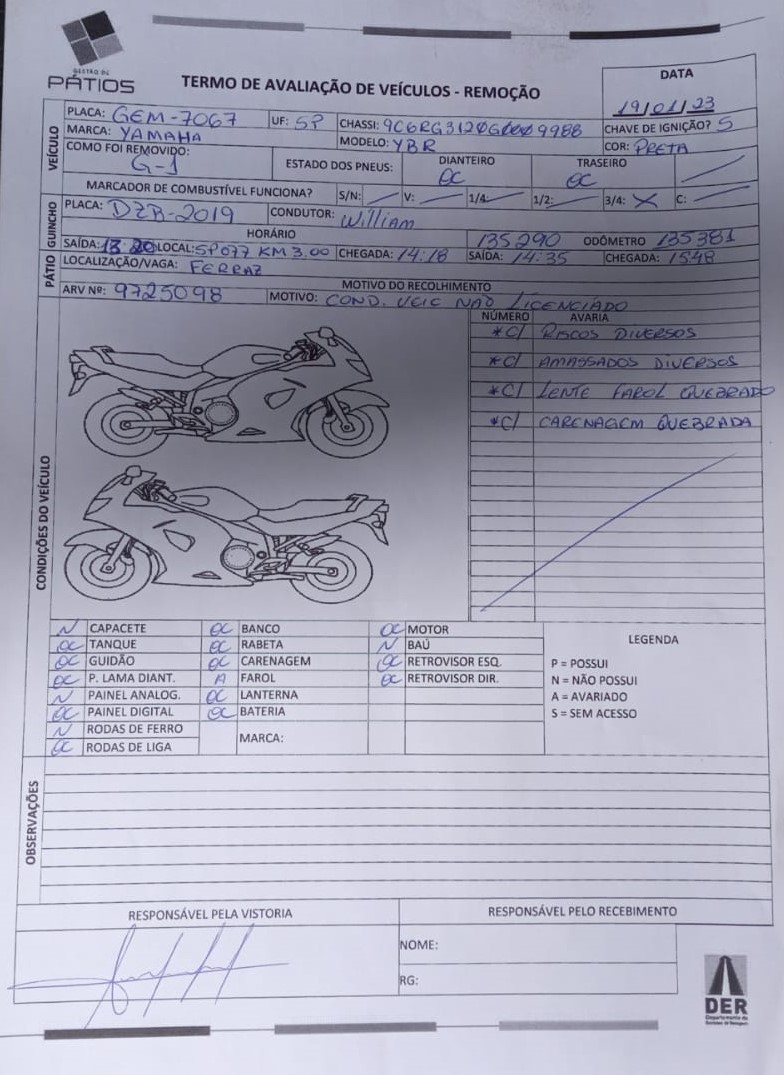 GESTÃO DE
PÁTIOS
TERMO DE AVALIAÇÃO DE VEÍCULOS - REMOÇÃO
DATA
19/01/23
VEÍCULO
PLACA: GEM-7067 UF: SP CHASSI: 9C6RG3120G0009988 CHAVE DE IGNIÇÃO? S
MARCA: YAMAHA MODELO: YBR COR: PRETA
COMO FOI REMOVIDO: G-1 ESTADO DOS PNEUS: DIANTEIRO OC TRASEIRO OC
MARCADOR DE COMBUSTÍVEL FUNCIONA? S/N: V: 1/4: 1/2: 3/4: X C:
GUINCHO
PLACA: DZB-2019 CONDUTOR: William
HORÁRIO 135290 ODÔMETRO 135381
SAÍDA: 13:20 LOCAL: SP077 KM 3.00 CHEGADA: 14:18 SAÍDA: 14:35 CHEGADA: 15:48
PÁTIO
LOCALIZAÇÃO/VAGA: FERRAZ
MOTIVO DO RECOLHIMENTO
ARV Nº: 9725098 MOTIVO: COND. VEIC NÃO LICENCIADO
CONDIÇÕES DO VEÍCULO
NÚMERO AVARIA
*C/ RISCOS DIVERSOS
*C/ AMASSADOS DIVERSOS
*C/ LENTE FAROL QUEBRADO
*C/ CARENAGEM QUEBRADA
N CAPACETE OC BANCO OC MOTOR
OC TANQUE OC RABETA N BAÚ
OC GUIDÃO OC CARENAGEM OC RETROVISOR ESQ.
OC P. LAMA DIANT. A FAROL OC RETROVISOR DIR.
N PAINEL ANALOG. OC LANTERNA
OC PAINEL DIGITAL OC BATERIA
N RODAS DE FERRO
OC RODAS DE LIGA MARCA:
LEGENDA
P = POSSUI
N = NÃO POSSUI
A = AVARIADO
S = SEM ACESSO
OBSERVAÇÕES
RESPONSÁVEL PELA VISTORIA RESPONSÁVEL PELO RECEBIMENTO
NOME:
RG:
DER